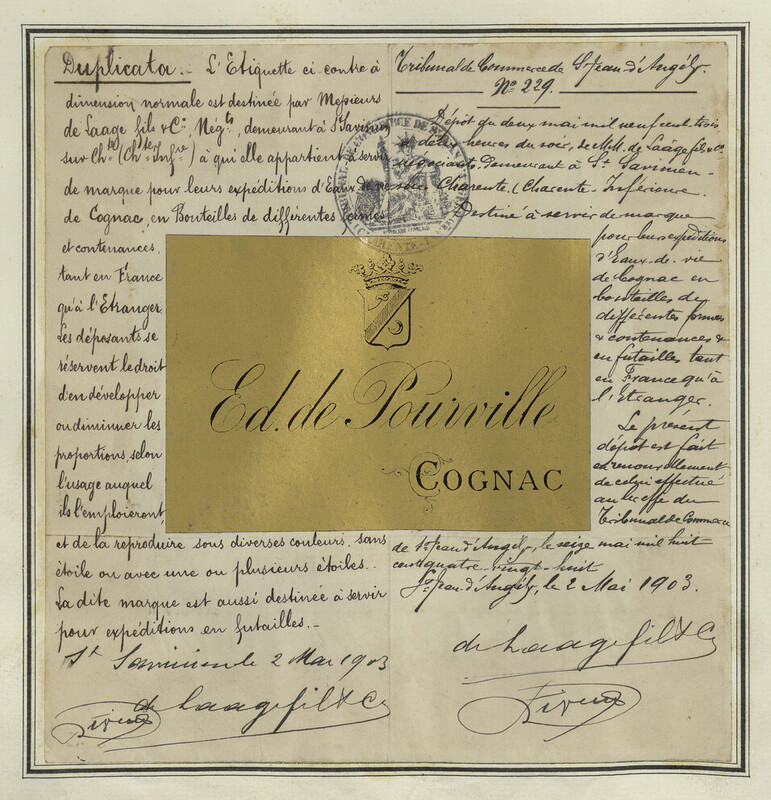 Duplicata.- L'Etiquette ci contre à
dimension normale est destinée par Messieurs
de Laage fils & Cie, Négts, demeurant à St Savinien
sur Chte (Chte Infre) à qui elle appartient à servir
de marque pour leurs expéditions d'Eaux de vie
de Cognac, en Bouteilles de différentes formes
et contenances,
tant en France
qu'à l'Etranger.
Les déposants se
réservent le droit
d'en développer
ou diminuer les
proportions, selon
l'usage auquel
ils l'emploieront,
et de la reproduire sous diverses couleurs, sans
étoile ou avec une ou plusieurs étoiles.
La dite marque est aussi destinée à servir
pour expéditions en futailles.-
St Savinien le 2 Mai 1903
de Laage fils & Co
Tribunal de Commerce de St Jean d'Angély.
No 229.
Dépôt du deux mai mil neuf cent trois
à deux heures du soir, de MM. de Laage fils & Co
négociants, demeurant à St Savinien-
sur Charente, (Charente-Inférieure.
Destiné à servir de marque
pour leurs expéditions
d'Eaux-de-vie
de Cognac en
bouteilles de
différentes formes
& contenances &
en futailles tant
en France qu'à
l'Etranger.
Le présent
dépôt est fait
en renouvellement
de celui effectué
au Greffe du
Tribunal de Commerce
de St Jean d'Angély, le seize mai mil huit
cent quatre-vingt-huit
St Jean d'Angély, le 2 Mai 1903.
de Laage fils & Co
Ed. de Pourville
COGNAC